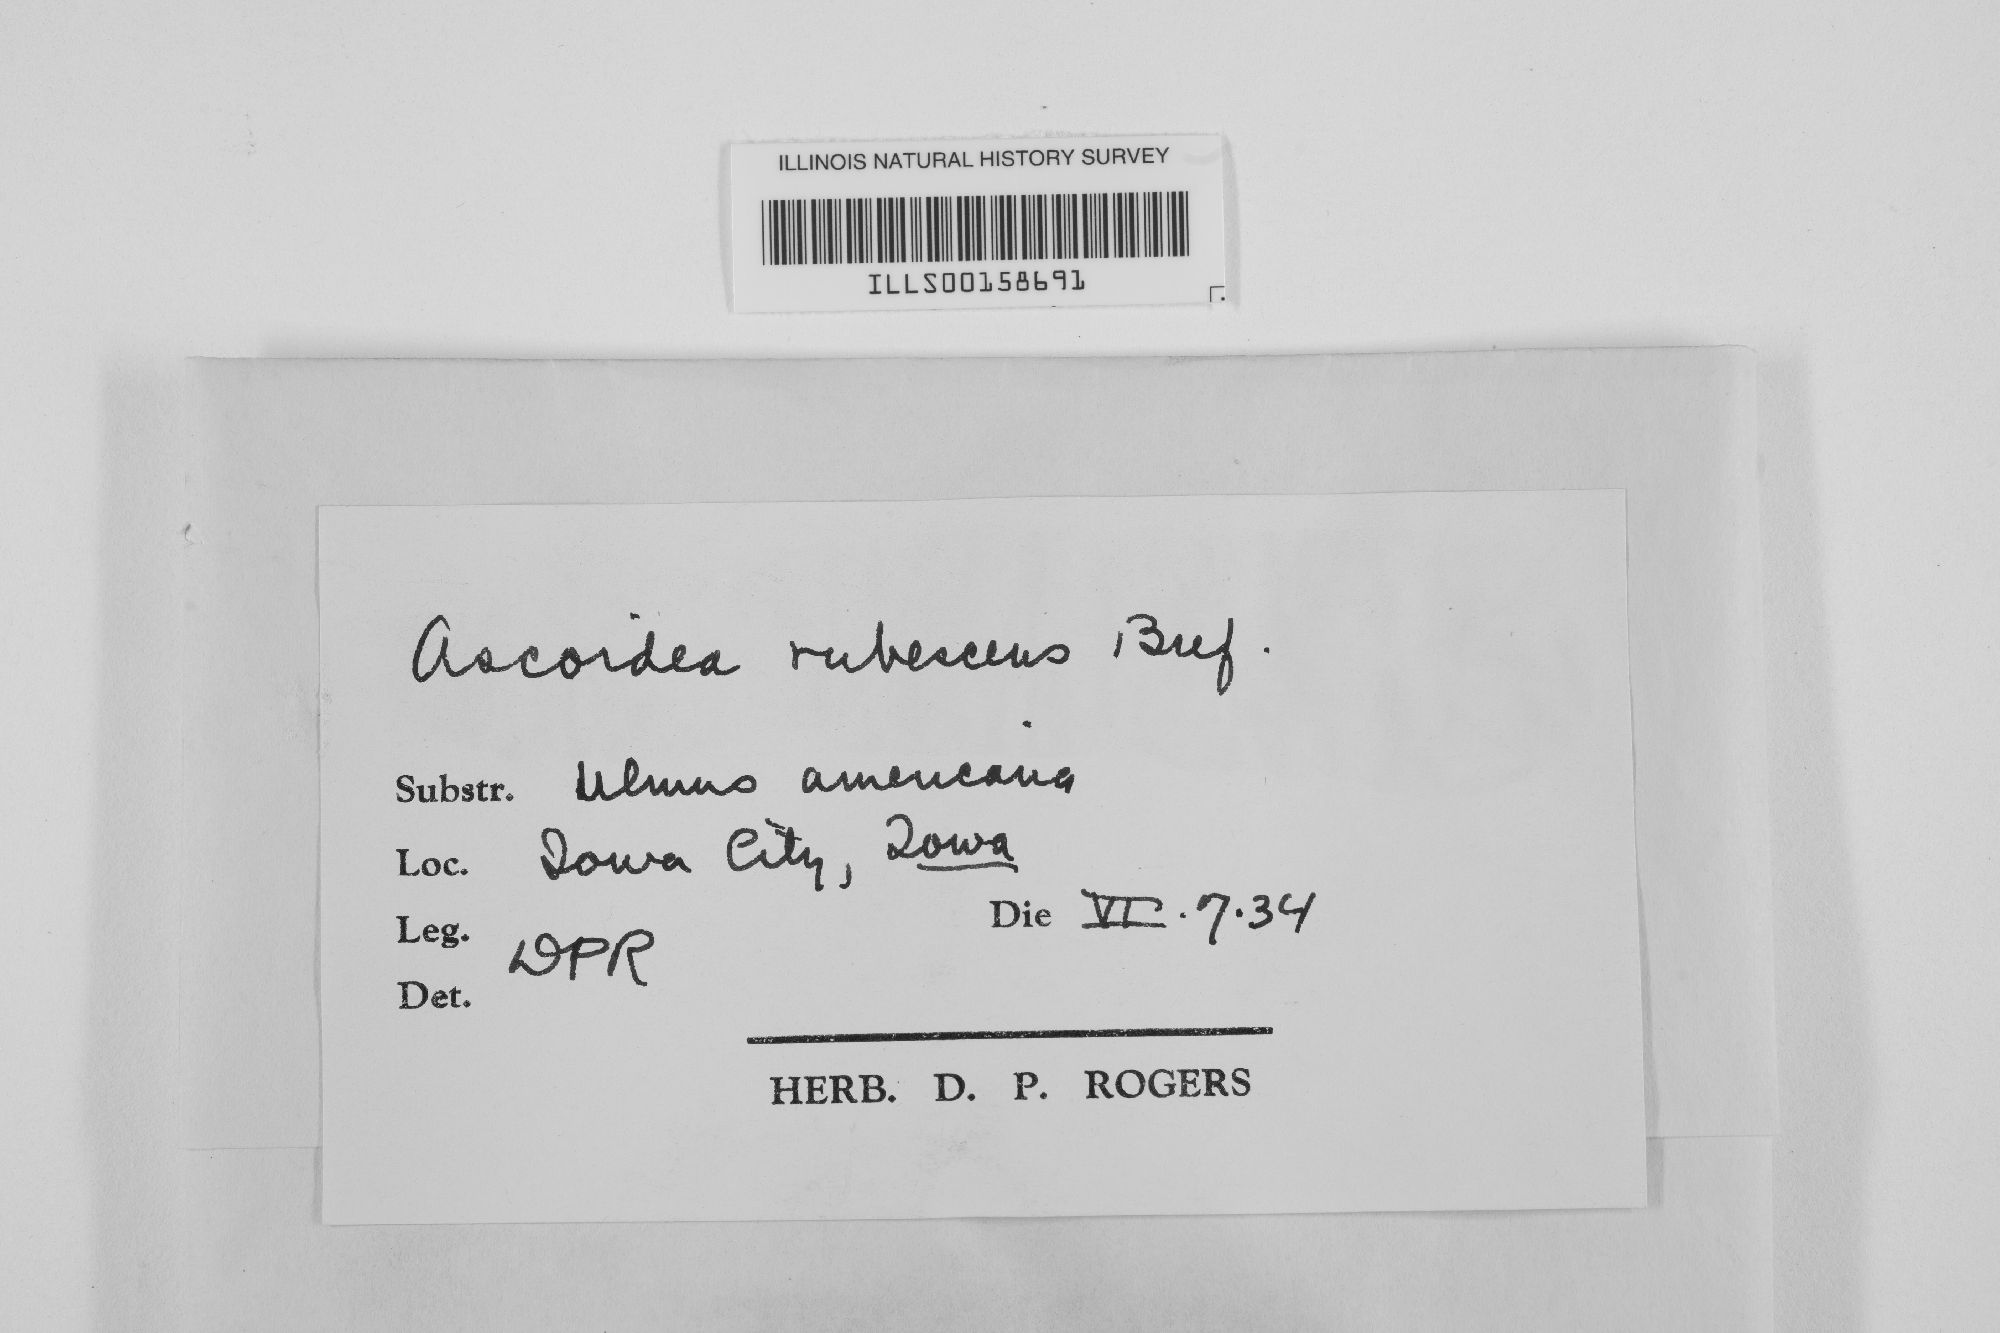 ILLINOIS NATURAL HISTORY SURVEY
ILLS00158691
Ascoidea rubescens Bref.
Substr. Ulmus americana
Loc. Iowa City, Iowa
Leg. Die VI.7.34
DPR
Det.
HERB. D. P. ROGERS